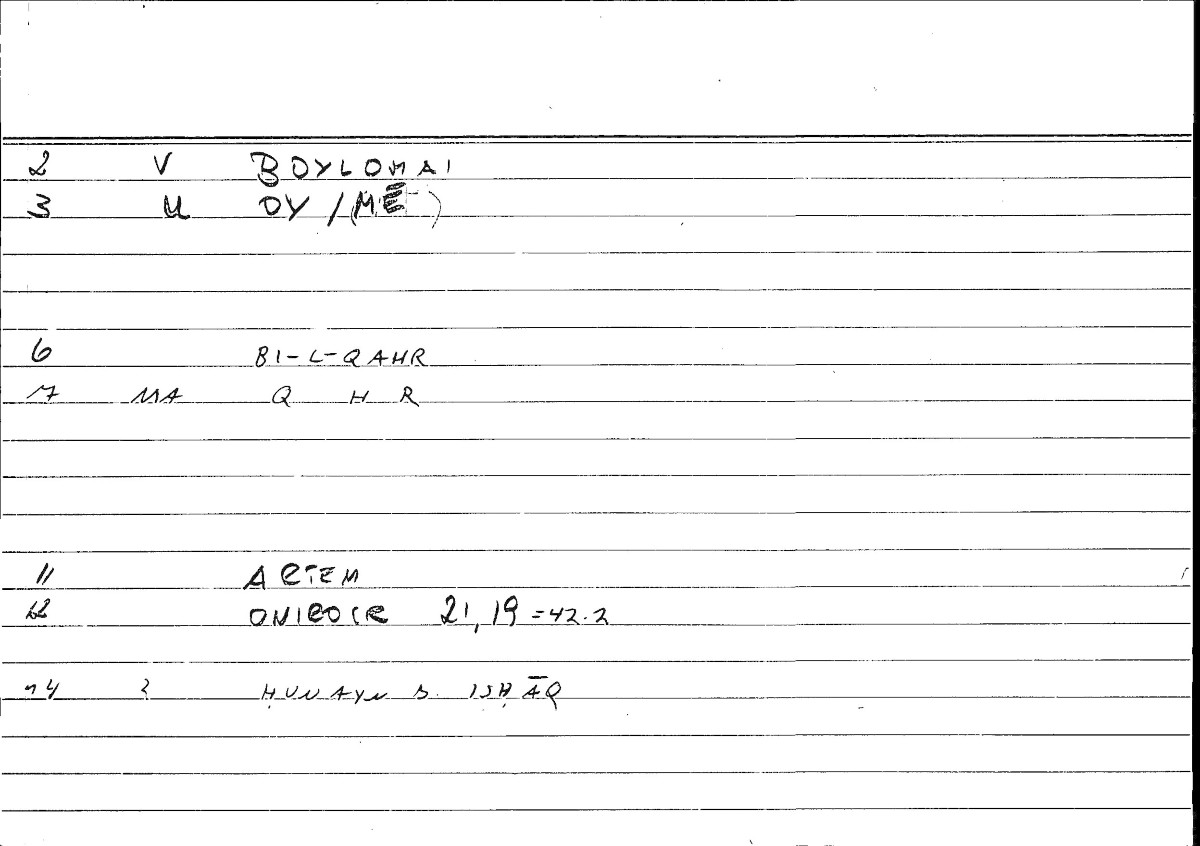 2 V BOYLOMAI
3 U OY / (MĒ)
6 BI-L-QAHR
7 MA Q H R
11 ARTEM
12 ONIROCR 21,19 = 42.2
14 2 ḤUNAYN B. ISḤĀQ